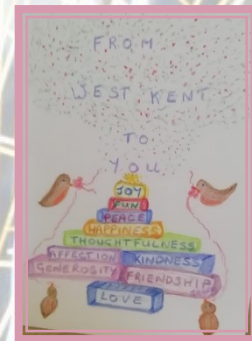 FROM
WEST KENT
TO
YOU
JOY
FUN
PEACE
HAPPINESS
THOUGHTFULNESS
AFFECTION KINDNESS
GENEROSITY FRIENDSHIP
LOVE